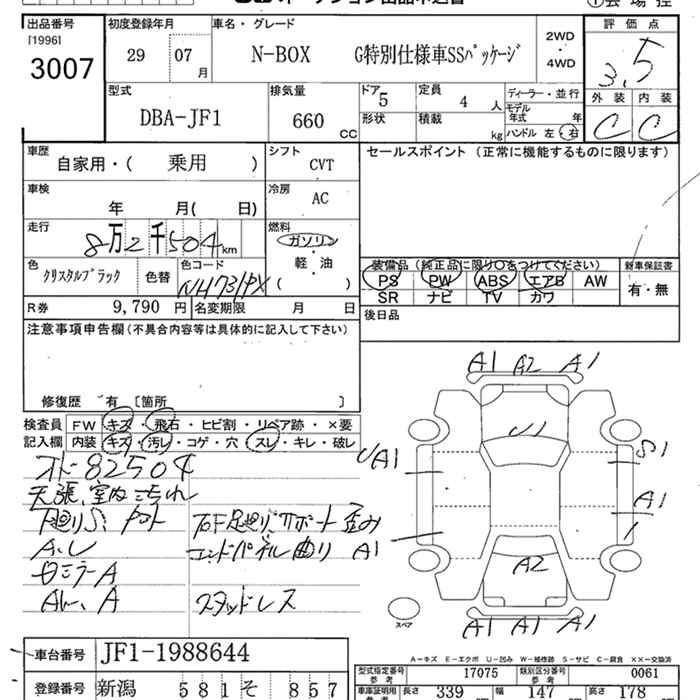 出品番号 初度登録年月 車名・グレード 評価点
[1996] 29 07 月 N-BOX G特別仕様車SSパッケージ 2WD ・ 4WD 3.5
3007
型式 排気量 ドア 定員 ディーラー・並行 外装 内装
DBA-JF1 660 CC 5 4 人 モデル年式 年 C C
形状 積載 kg ハンドル 左・右
車歴 シフト セールスポイント (正常に機能するものに限ります)
自家用・( 乗用 ) CVT
車検 冷房
年 月( 日) AC
走行 燃料
8万2千504km ガソリン
軽・油
( )
色 色コード 装備品(純正品に限り○をつけてください) 新車保証書
クリスタルブラック 色替 NH731PX PS PW ABS エアB AW 有・無
SR ナビ TV カワ
R券 9,790 円 名変期限 月 日 後日品
注意事項申告欄(不具合内容等は具体的に記入して下さい)
修復歴 有 [箇所 ]
検査員 FW キズ・飛石・ヒビ割・リペア跡・×要
記入欄 内装 キズ・汚レ・コゲ・穴・スレ・キレ・破レ
A1 A2 A1
U1
UA1 S1
A1
A2
A1 A1 A1
スペア
オド82504
天張、室内こ汚れ
下廻りS 石F足廻り、サポート歪み
A.U エンドパネル曲り A1
ミラーA
A スタッドレス
A-キズ E-エクボ U-凹み W-補修跡 S-サビ C-腐食 ××-交換済
車台番号 JF1-1988644 型式指定番号 参考 17075 類別区分番号 参考 0061
登録番号 新潟 581 そ 857 車庫証明用 参考 長さ 339 幅 147 高さ 178